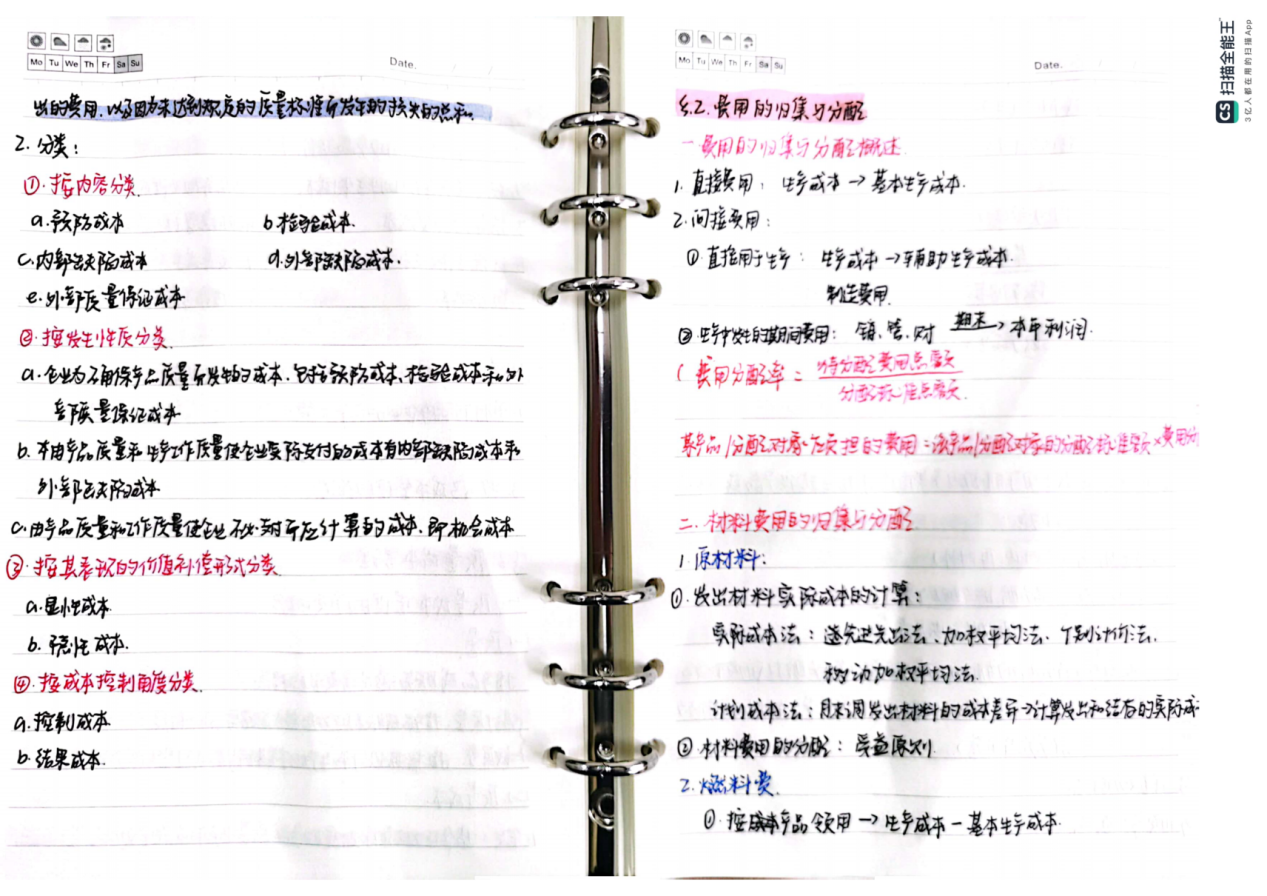 Mo Tu We Th Fr Sa Su
Date.
出的费用,以及因为未达到规定的质量标准所发生的损失的总和.
2. 分类:
①. 按内容分类.
a. 预防成本 b. 检验成本.
c. 内部缺陷成本 d. 外部缺陷成本.
e. 外部质量保证成本
②. 按发生性质分类.
a. 企业为了确保产品质量所发生的成本,包括预防成本、检验成本和外
部质量保证成本
b. 本由产品质量和生产工作质量使企业实际支付的成本有内部缺陷成本和
外部缺陷成本
c. 由产品质量和工作质量使企业不必对所应计算的成本,即机会成本
③. 按其表现的价值补偿形式分类.
a. 显性成本
b. 隐性成本.
④. 按成本控制角度分类.
a. 控制成本
b. 结果成本.
Mo Tu We Th Fr Sa Su
Date.
§.2. 费用的归集与分配
一 费用的归集与分配概述.
1. 直接费用: 生产成本→基本生产成本.
2. 间接费用:
①. 直接用于生产: 生产成本→辅助生产成本.
制造费用.
② 生产中发生的期间费用: 销、管、财 期末→本年利润.
( 费用分配率 = 待分配费用总额
分配标准总额.
某产品/分配对象应负担的费用=该产品/分配对象的分配标准额×费用分
二. 材料费用的归集与分配
1. 原材料:
①. 发出材料实际成本的计算:
实际成本法: 先进先出法、加权平均法、个别计价法.
移动加权平均法.
计划成本法: 月末调发出材料的成本差异→计算发出和结存的实际成
② 材料费用的分配: 受益原则.
2. 燃料费.
①. 按成本产品领用→生产成本-基本生产成本.
CS 扫描全能王
3亿人都在用的扫描App